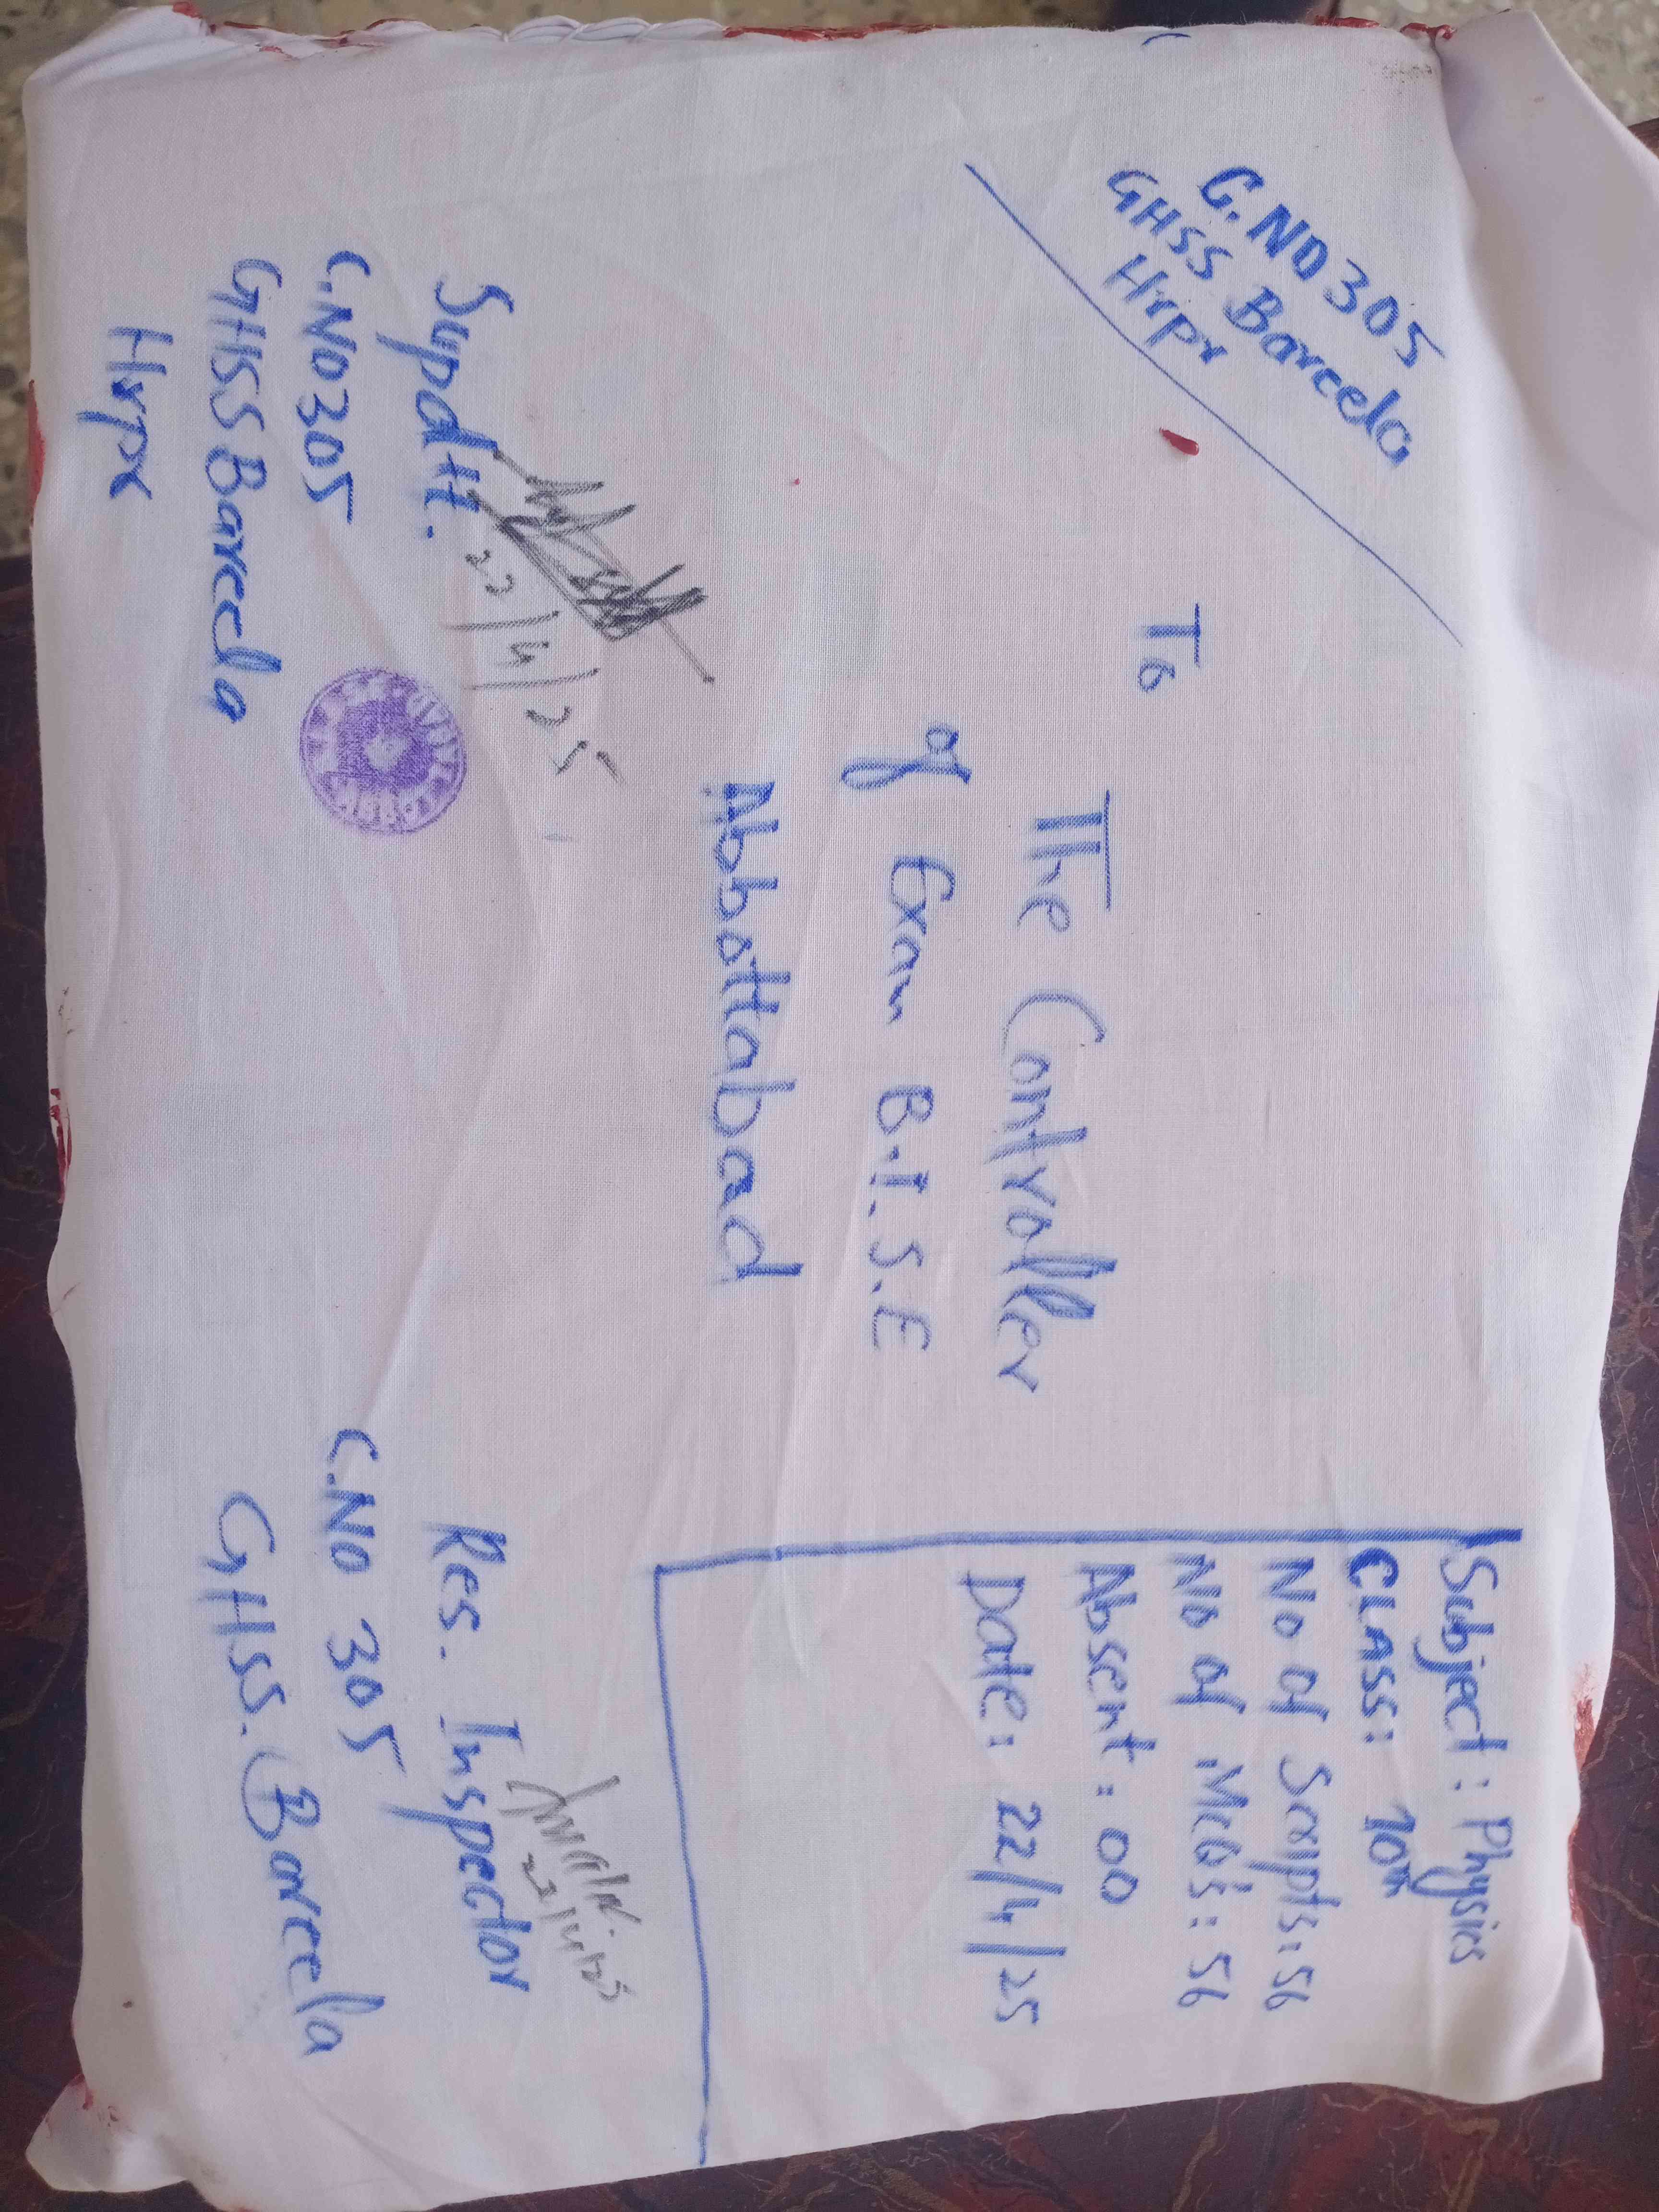 C.NO 305
GHSS Barcela
Hrpr
Subject: Physics
CLASS: 10th
No of Scripts: 56
No of MCQ's: 56
Absent: 00
Date: 22/4/25
To
The Controller
of Exam B.I.S.E
Abbottabad
22/4/25
Supdtt.
C.NO 305
GHSS Barcela
Hrpr
22/4/25
Res. Inspector
C.NO 305
GHSS. Barcela